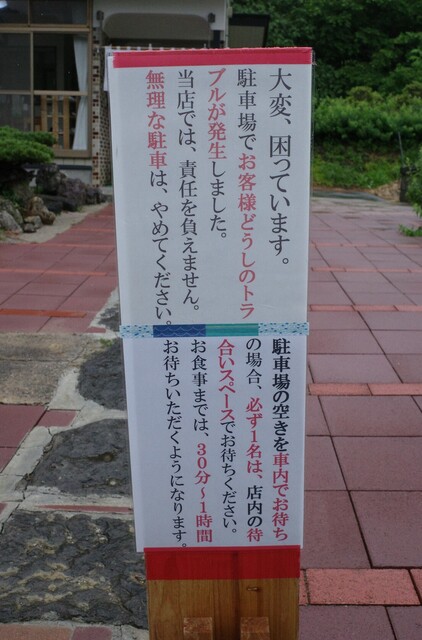 大変、困っています。
駐車場でお客様どうしのトラ
ブルが発生しました。
当店では、責任を負えません。
無理な駐車は、やめてください。
駐車場の空きを車内でお待ち
の場合、必ず1名は、店内の待
合いスペースでお待ちください。
お食事までは、30分～1時間
お待ちいただくようになります。